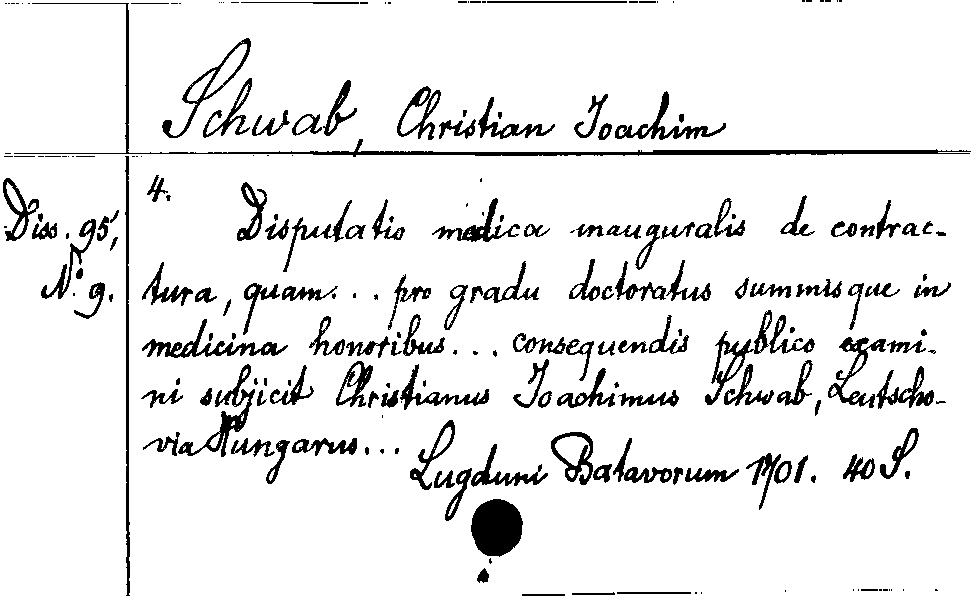 Schwab, Christian Joachim
4.
Diss. 95,
No. 9.
Disputatio medica inauguralis de contrac-
tura, quam... pro gradu doctoratus summisque in
medicina honoribus... consequendis publico exami-
ni subjicit Christianus Joachimus Schwab, Leutscho-
via Hungarus...
Lugduni Batavorum 1701. 40 S.